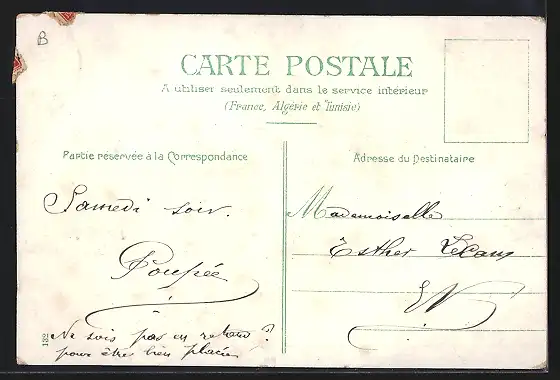 B
CARTE POSTALE
A utiliser seulement dans le service intérieur
(France, Algérie et Tunisie)
Partie réservée à la Correspondance
Adresse du Destinataire
Samedi soir.
Poupée
Ne sois pas en retard?
pour être bien placées
132
Mademoiselle
Esther
EV